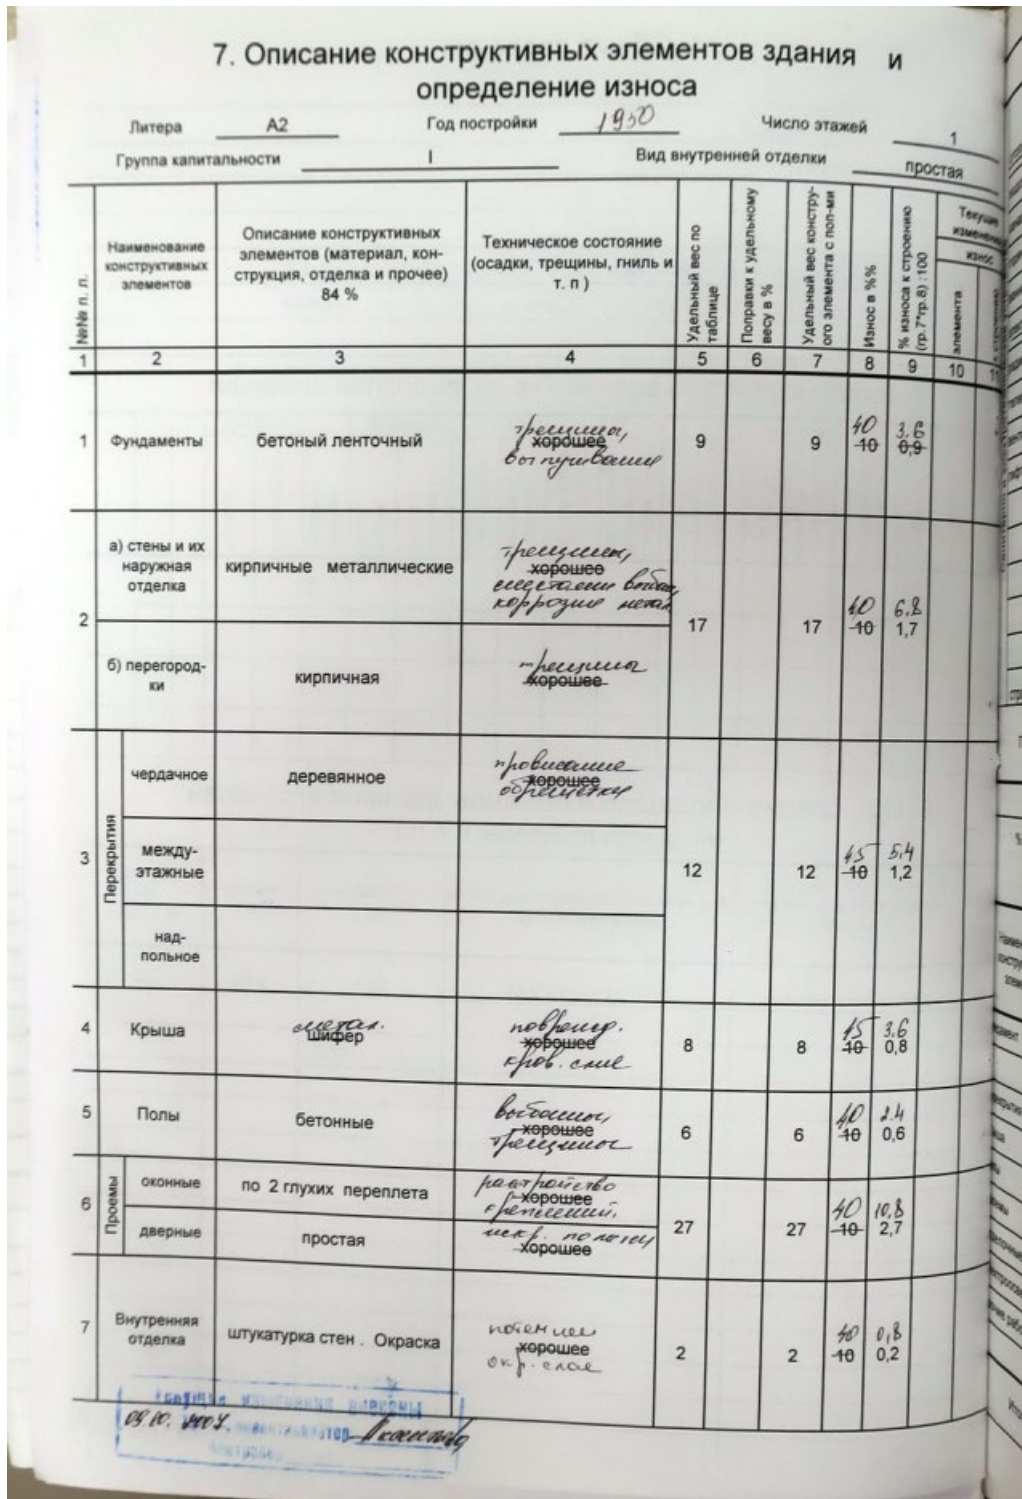 7. Описание конструктивных элементов здания и
определение износа
Литера А2 Год постройки 1950 Число этажей 1
Группа капитальности I Вид внутренней отделки простая
№№ п. п.
Наименование
конструктивных
элементов
Описание конструктивных
элементов (материал, кон-
струкция, отделка и прочее)
84 %
Техническое состояние
(осадки, трещины, гниль и
т. п )
Удельный вес по
таблице
Поправки к удельному
весу в %
Удельный вес констру-
ого элемента с поп-ми
Износ в %%
% износа к строению
(гр.7*гр.8) :100
Текущие
изменения
износ
элемента
к строению
1 2 3 4 5 6 7 8 9 10 11
1 Фундаменты бетоный ленточный
трещины,
хорошее
выпучивание
9 9
40
10
3.6
0,9
2
а) стены и их
наружная
отделка
кирпичные металлические
трещины,
хорошее
коррозия метал
17 17
40
10
6.8
1,7
б) перегород-
ки
кирпичная
трещины
хорошее
3 Перекрытия
чердачное
деревянное
провисание
хорошее
обрешетки
между-
этажные
12 12
45
10
5.4
1,2
над-
польное
4 Крыша
метал.
шифер
поврежд.
хорошее
кров. слие
8 8
45
10
3.6
0,8
5 Полы бетонные
выбоины,
хорошее
трещины
6 6
40
10
2.4
0,6
6 Проемы
оконные по 2 глухих переплета
расстройство
хорошее
креплений.
дверные простая
искр. полотен
хорошее
27 27
40
10
10,8
2,7
7
Внутренняя
отделка
штукатурка стен . Окраска
потемнен
хорошее
окр. слое
2 2
40
10
0,8
0,2
Текущие изменения внесены
09.10. 2007.